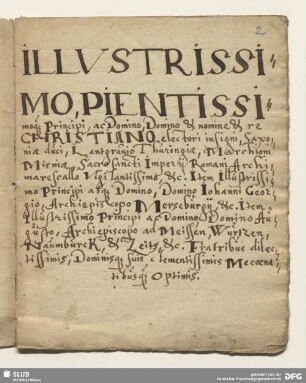 2
ILLVSTRISSI=
MO, PIENTISSI=
moq; Principi, ac Domino, Domino & nomine & re
CHRISTIANO electori insigni, Saxo,
niæ duci, Lantgravio Thuringiæ, Marchioni
Misniæ, Sacrosancti Imperij Romani Archi,
marescallo Vigilantissimo, &c. Item Illustrissi,
mo Principi atq; Domino, Domino Iohanni Geor,
gio, Archiepiscopo Merseburgij &c. Item
Illustrissimo Principi ac Domino, Domino Au,
gusto, Archiepiscopo ad Meissen, Wurtzen,
Naumburck, & Zeits, &c. Fratribus dilec,
tissimis, Dominisq; suis clementissimis Mecœna,
tibusq; Optimis.
SLUB
Wir führen Wissen.
gefördert von der
Deutschen Forschungsgemeinschaft
DFG